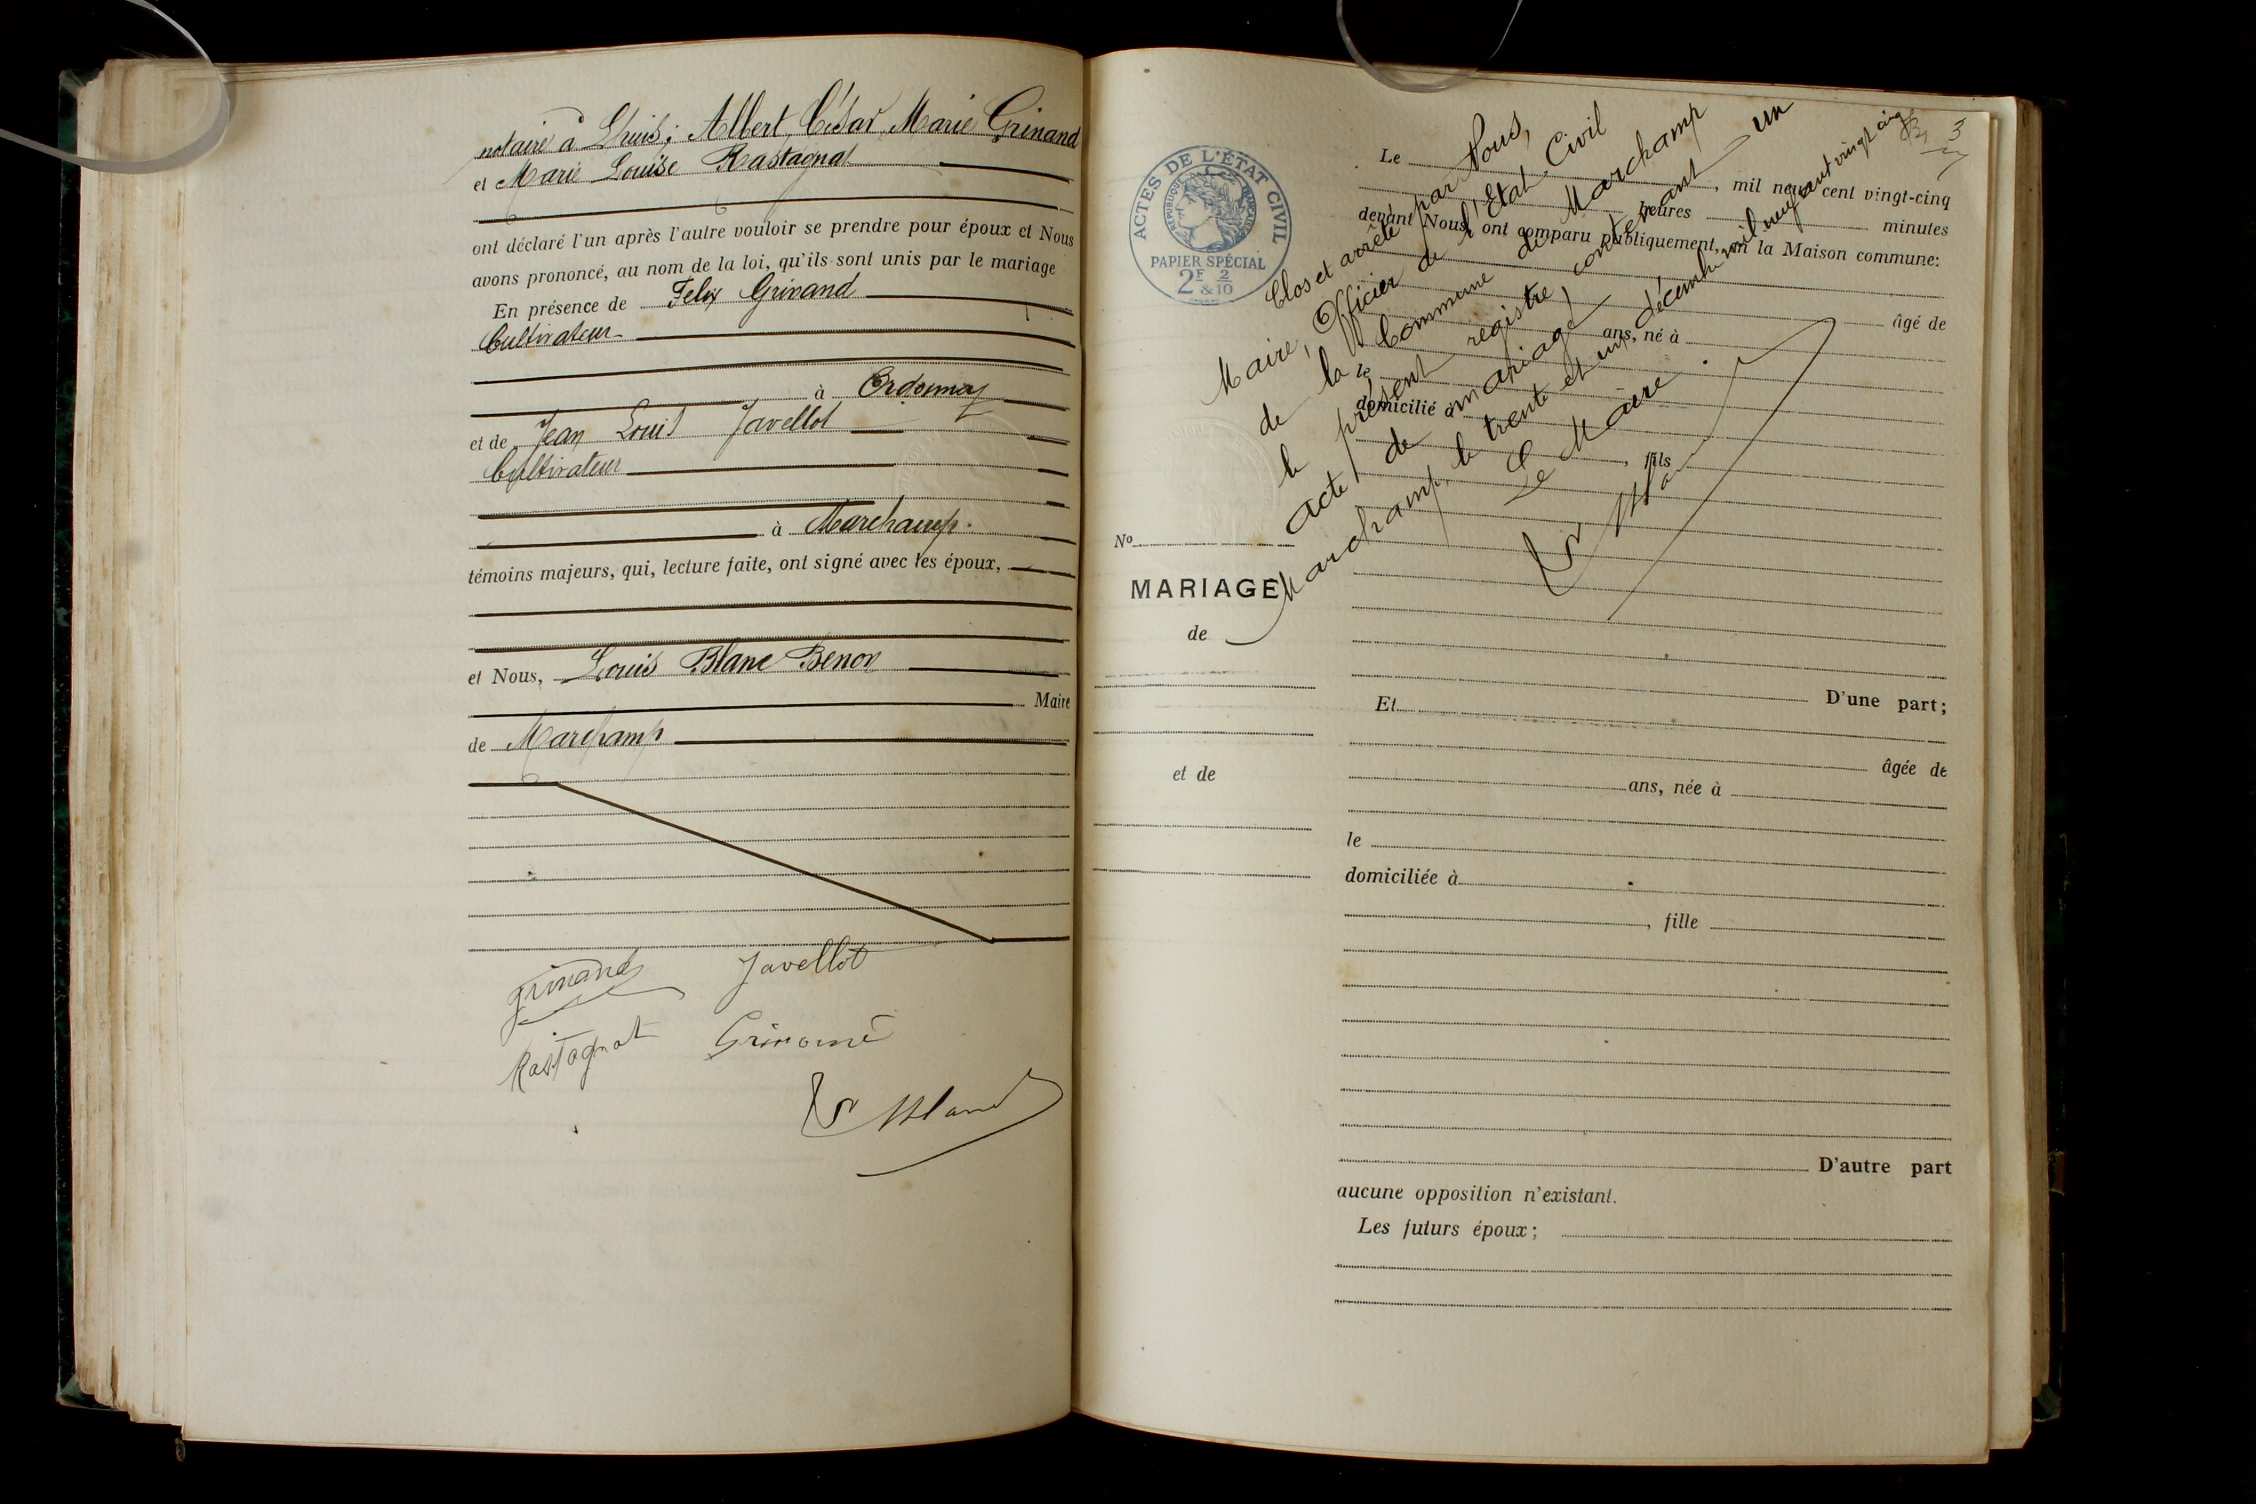 notaire à Lhuis ; Albert César Marie Grinand
et Marie Louise Rastagnat
ont déclaré l'un après l'autre vouloir se prendre pour époux et Nous
avons prononcé, au nom de la loi, qu'ils sont unis par le mariage
En présence de Felix Grinand
Cultivateur
à Ordonnaz
et de Jean Louis Javellot
Cultivateur
à Marchamp.
témoins majeurs, qui, lecture faite, ont signé avec les époux,
et Nous, Louis Blanc Benon
Maire
de Marchamp
Grinand
Javellot
Rastagnat
Grinand
Blanc
3
ACTES DE L'ÉTAT CIVIL
RÉPUBLIQUE FRANÇAISE
PAPIER SPÉCIAL
2F & 2/10
Clos et arrêté par Nous,
Maire, Officier de l'Etat Civil
de la Commune de Marchamp
le présent registre, contenant un
acte de mariage
Marchamp, le trente et un décembre mil neuf cent vingt cinq
Le Maire
Blanc
Le
, mil neuf cent vingt-cinq
heures
minutes
devant Nous ont comparu publiquement, en la Maison commune:
âgé de
ans, né à
le
domicilié à
, fils
D'une part;
Et
âgée de
ans, née à
le
domiciliée à
, fille
D'autre part
aucune opposition n'existant.
Les futurs époux ;
No
MARIAGE
de
et de